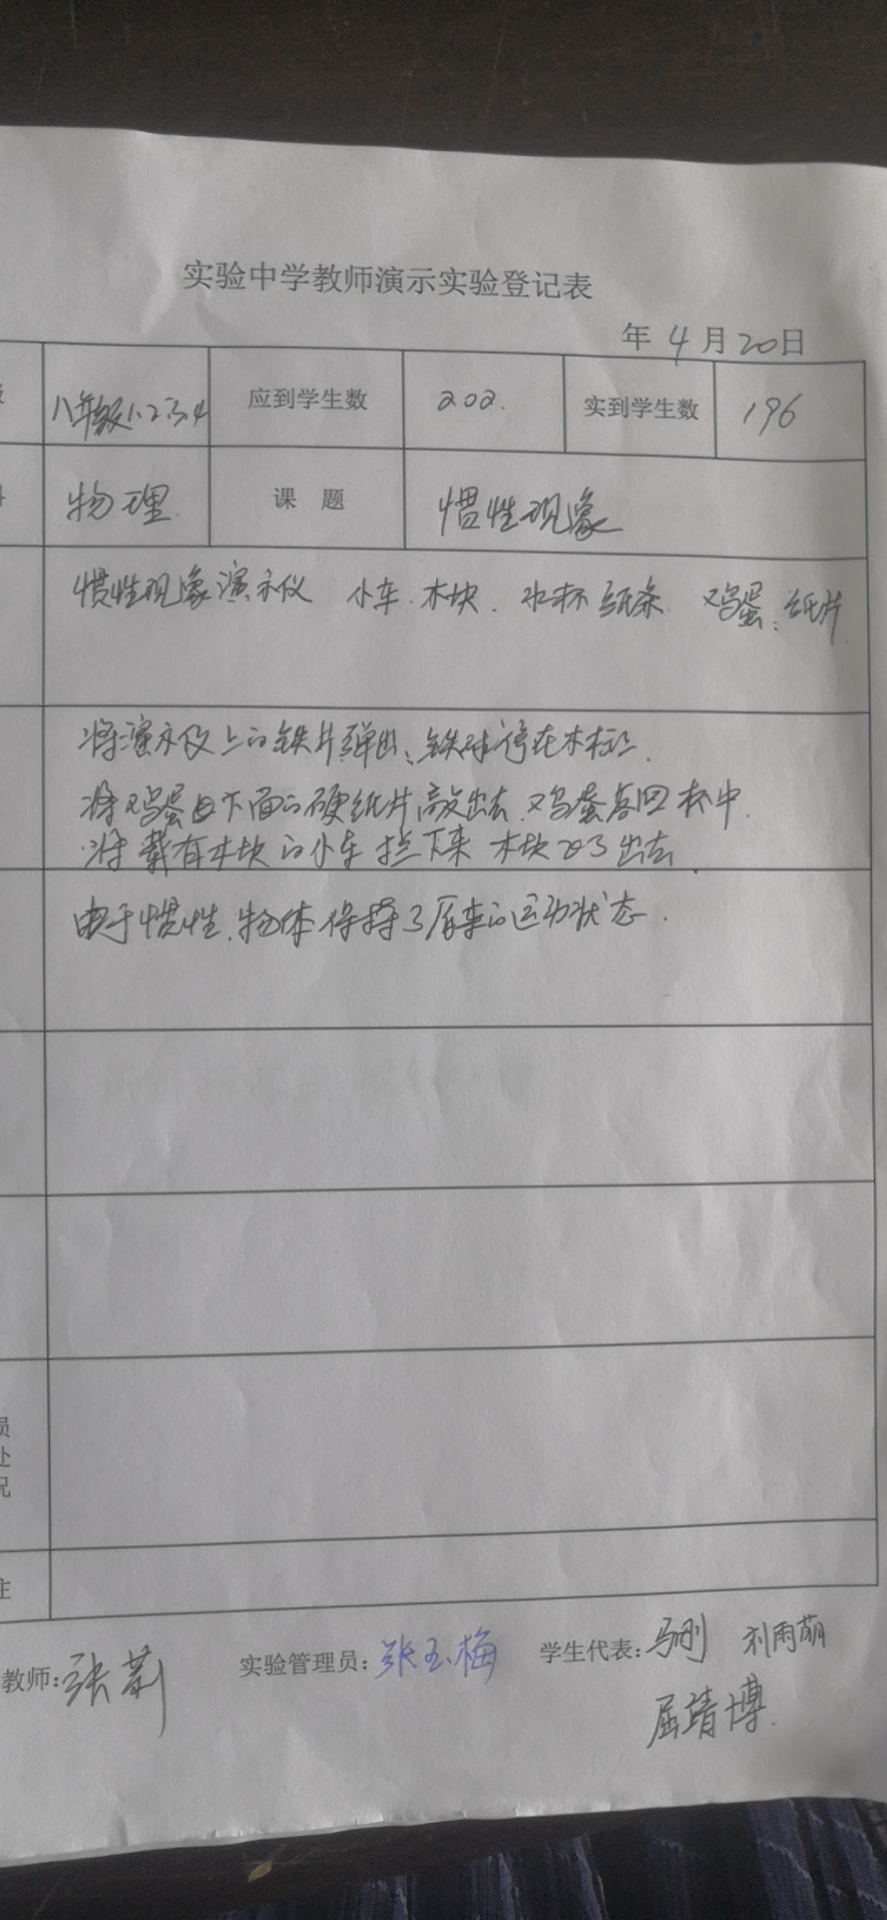 实验中学教师演示实验登记表
年 4 月 20 日
八年级1.2.3.4 应到学生数 202. 实到学生数 196
物理. 课 题 惯性现象
惯性现象演示仪 小车. 木块. 水杯 纸条. 鸡蛋. 纸片
将演示仪上的铁片弹出、铁球停在木柱上.
将鸡蛋 下面的硬纸片敲出去.鸡蛋落回杯中.
将载有木块的小车拦下来 木块飞了出去.
由于惯性.物体保持了原来的运动状态.
损
处
况
注
教师: 张莉 实验管理员: 张玉梅 学生代表: 马刚 刘雨萌
屈靖博.